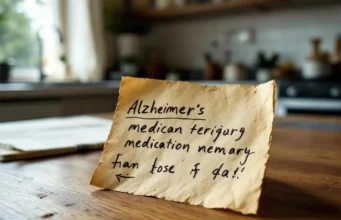 Alzheimer's
medican terigurg
medication nemary
fran fose 'f da!!